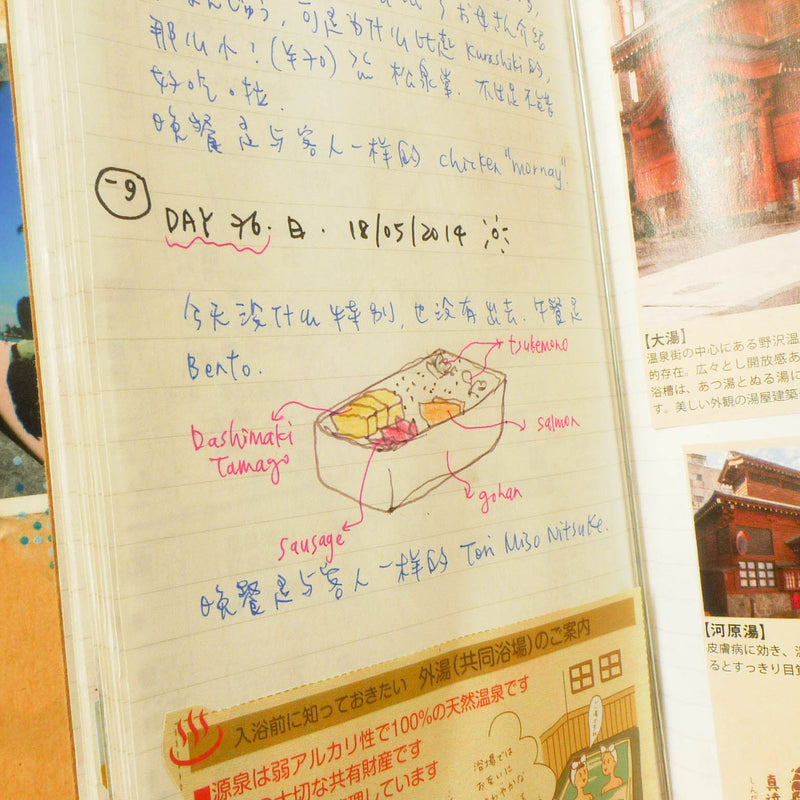 んじゅう, 可是为什么比起 Kurashiki 的,
那么小! (¥70)
好吃 啦.
晚餐是与客人一样的 chicken "mornay".
-9
DAY 76. 日. 18/05/2014
今天没什么特别, 也没有出去. 午餐是
Bento.
tsukemono
Dashimaki
Tamago
salmon
gohan
sausage
晚餐是与客人一样的 Tori Miso Nitsuke.
入浴前に知っておきたい 外湯(共同浴場)のご案内
■源泉は弱アルカリ性で100%の天然温泉です
大切な共有財産です
理しています
浴場では
お互いに
【大湯】
温泉街の中心にある野沢温
的存在。広々とし開放感あ
浴槽は、あつ湯とぬる湯に
す。美しい外観の湯屋建築
【河原湯】
皮膚病に効き、
るとすっきり目